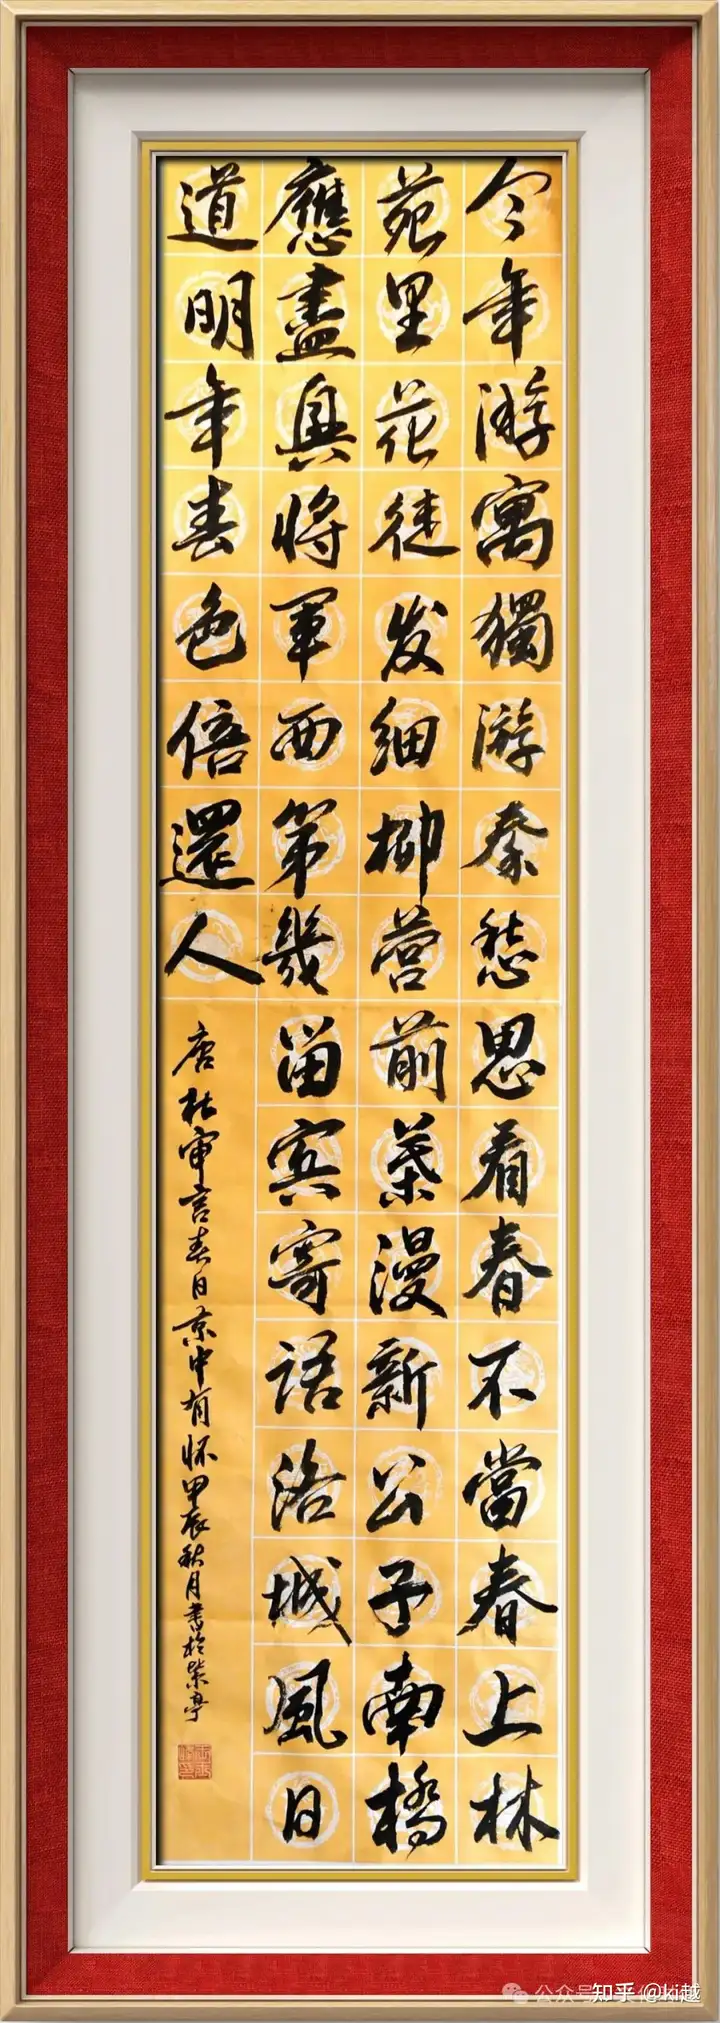 今年游寓獨游秦愁思看春不當春上林
苑里花徒发細柳营前葉漫新公子南橋
應盡興將軍西第幾留賓寄語洛城風日
道明年春色倍還人
唐杜审言春日京中有怀甲辰秋月書於紫亭
公众号
知乎 @ki越